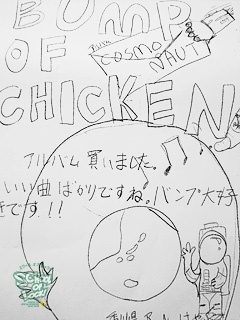 BUMP
OF
COSMO
NAUT
CHICKEN
アルバム買いました。
いい曲ばかりですね。バンプ大好
きです!!